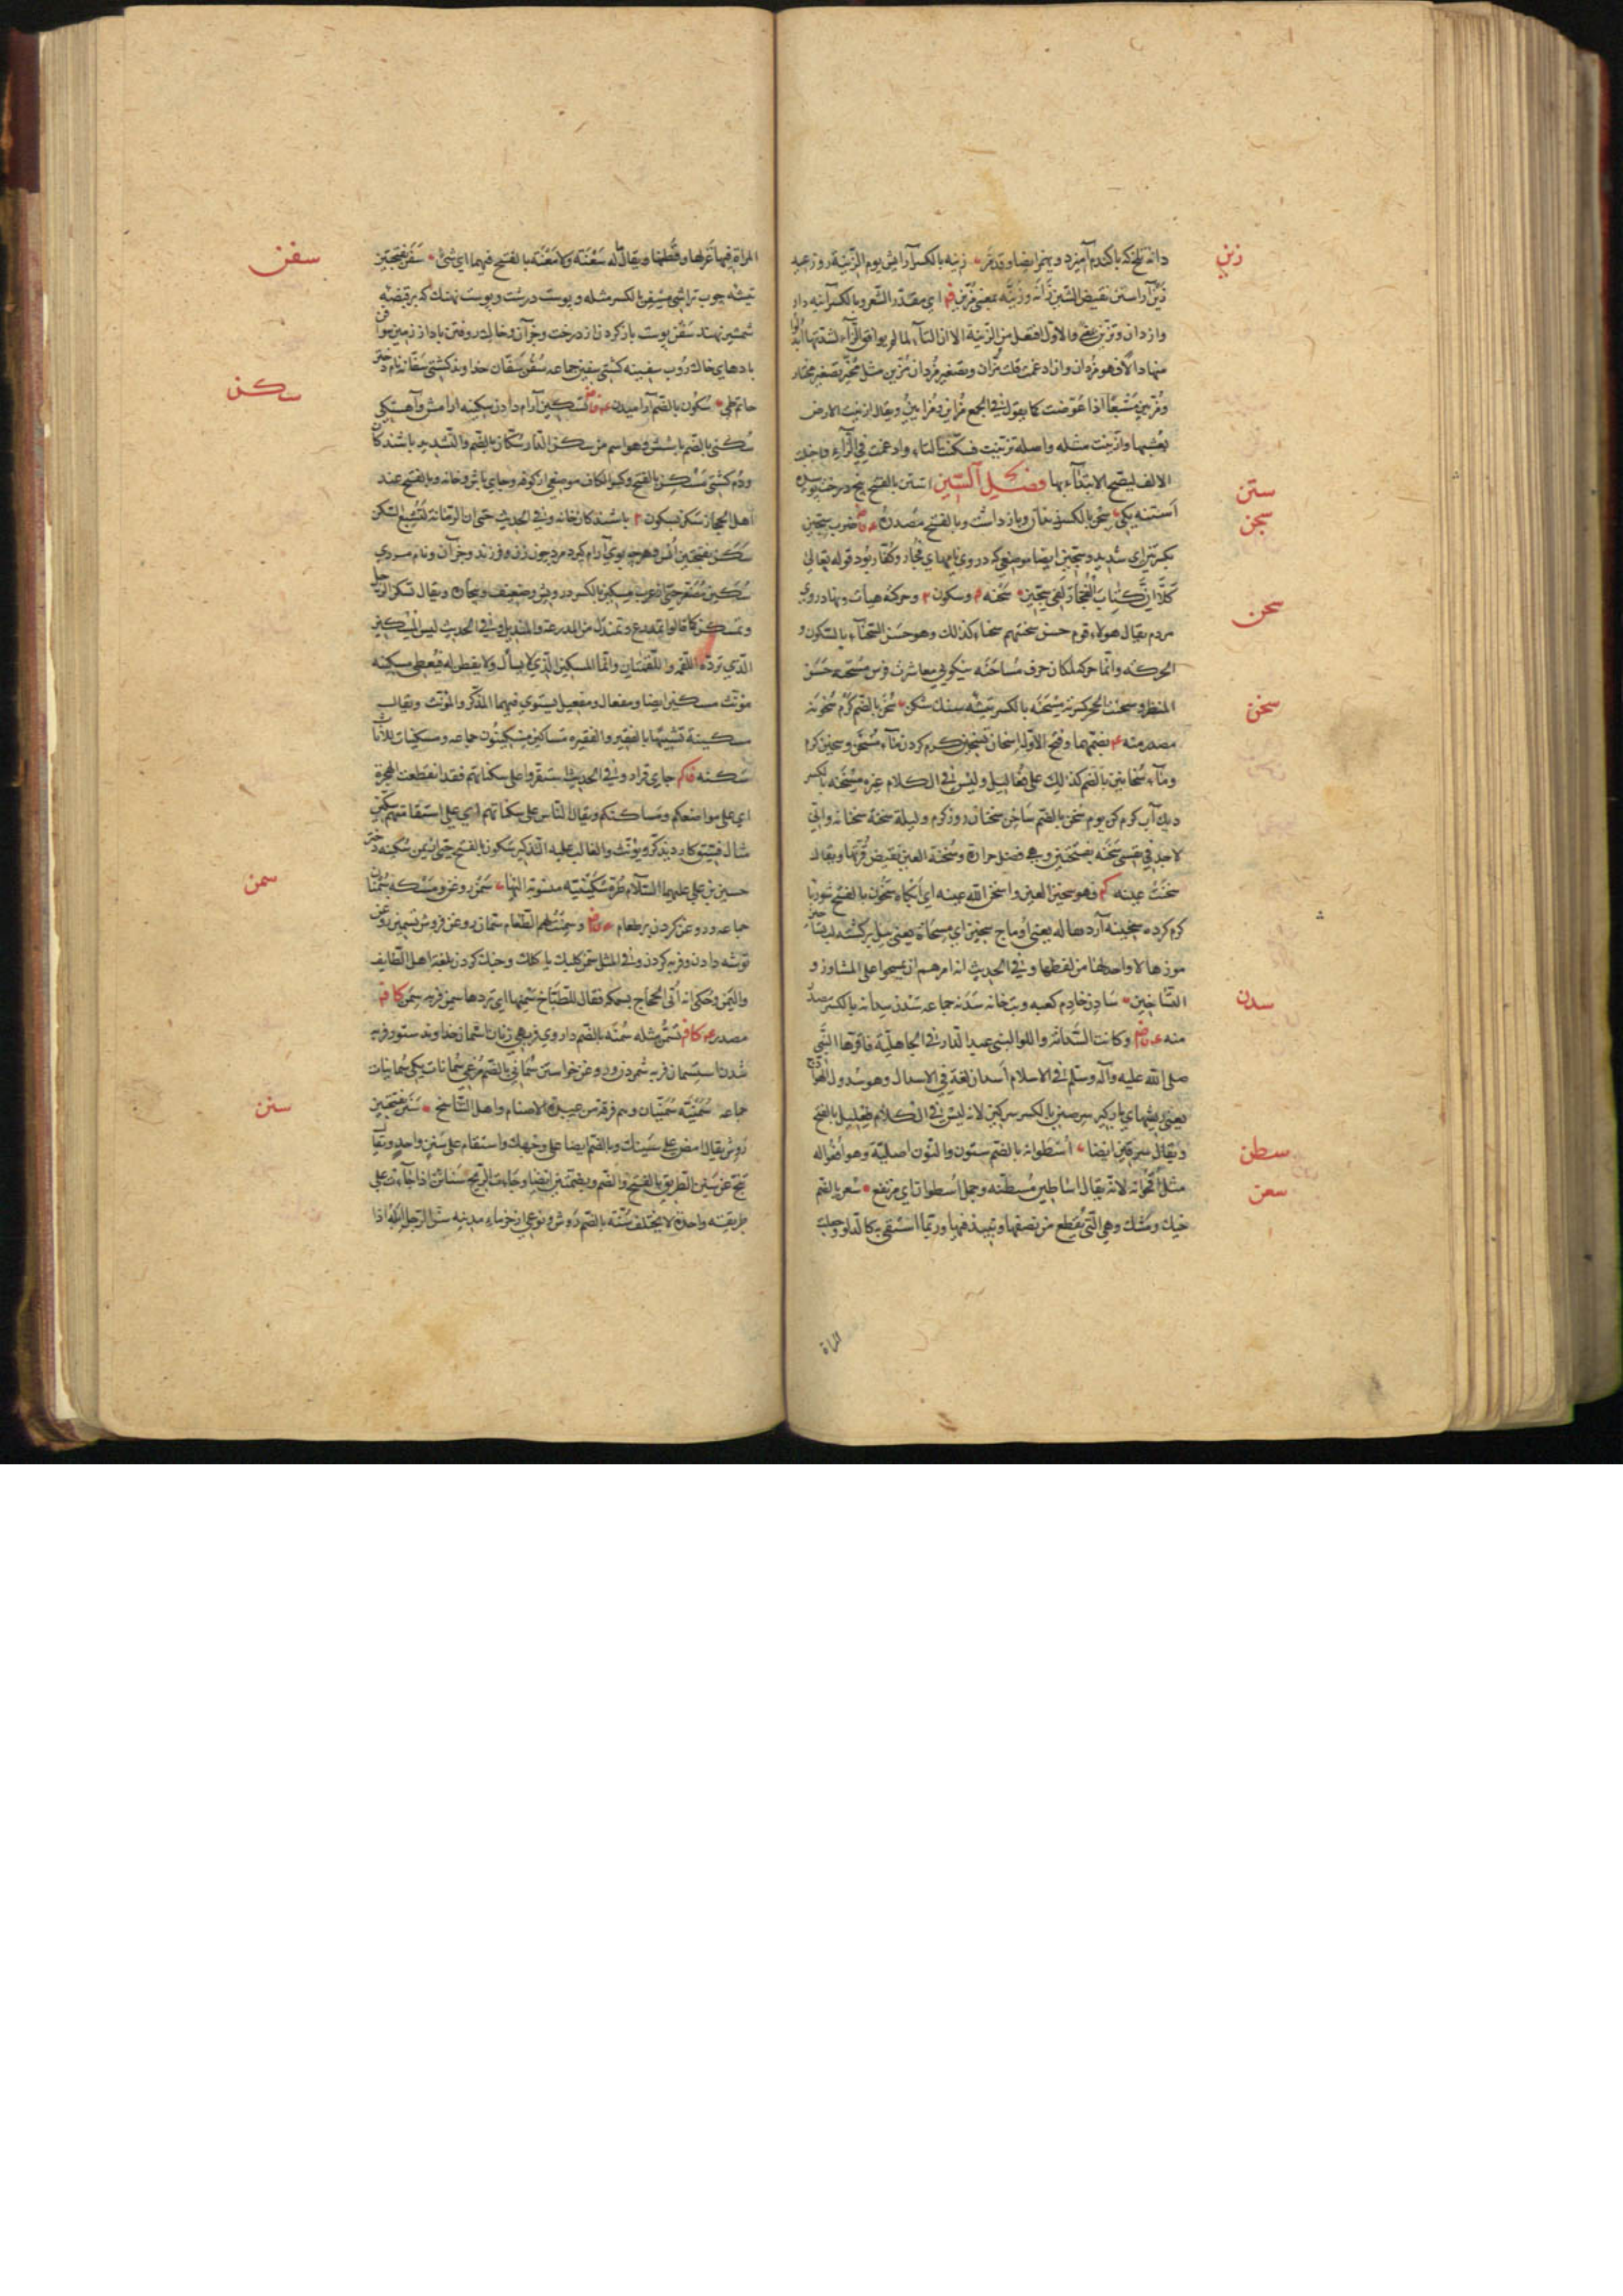 زين
دانه تلخ که با کندم آميزد و ينمز ايضا وقد مَرَّ زينه بالکسر آرايش يوم الزّينة روز عيد
زَيْن آراستن نقيض الشَين زانَه وزَيَّنَه بمعنى مُزَيَّن اي مقذّذ الشّعر وبالکسر آينه دار
وازديان وتزيّن والاوّل افتعل من الزّينة الا ان التاء لما لم يوافق الزاء لشدّتها ابدلوا
منها دالا فهو مُزدان وان ادغمت قلت مُزّان وتصغير مُزدان مُزَيِّن مثل مُخَيِّر تصغير مختار
ومُزَيِّين مُشبعًا اذا عوّضت کما يقول في الجمع مُزاين ومُزايين ويقال ازينت الارض
بعُشبها وازّينت مثله واصله تزيّنت فسکّنت التاء وادغمت في الزّاء واجتلبت
الالف ليصحّ الابتداء بها فصل السّين استن بالفتح بيخ درخت پوسيده
ستن
سجن
استنه يکي سِجن بالکسر زندان وبازداشت وبالفتح مصدره ضرب سِجّين
بکسرتين اي شديد وسجّين ايضا موضعي که در وي نامهاي فجّار وکفّار بود قوله تعالى
کَلَّا اِنَّ کِتابَ الفُجّارِ لَفي سِجّين سحنه وسکون وحرکة هيأت ونهاد روي
سحن
مردم يقال هولاء قوم حسن سحنتهم سحناء کذلک وهو حسَن السّحناء بالسّکون و
الحرکه وانّما حرک لمکان حرف مُساحنَه نيکويي معاشرت فرس مُسحَنه حَسَنَ
سخن
المنظر وسحنت الحجر کسرته مِسحَنَه بالکسر تيشه سنک شکن سُخن بالضم کرم سخونه
مصدر منه بضمهما وفتح الاوّل اِسخان تسخين کرم کردن ماء مُسَخّن وسخين کرم
وماء سُخاخين بالضم کذلک على فُعاليل وليس في الکلام غيره مِسخَنه بالکسر
ديک آب کرم کن يوم سُخن بالضم ساخِن سَخنان روز کرم وليلة سخنة سخنانة واني
لاجد في نفسى سَخَنه بفتحتين وهي فضل حرارة وسُخنة العين نقيض قُرّتها ويقال
سخنَت عينه فهو سخين العين واسخن الله عينه اي ابکاه سَخُون بالفتح شوربا
کرم کرده سخينه آرد هاله يعني اوماج سِخّين اي مِسحاة يعني بيل برکشته تساخين
موزها لا واحد لها من لفظها وفي الحديث انه امرهم ان يمسحوا على المشاوذ و
سدن
التّساخين سادِن خادم کعبه وبت خانه سدَنه جماعه سَدن سِدانه بالکسر مصدر
منه وکانت السّدانة واللوا لبنى عبد الدار في الجاهليّة فاقرّها النّبي
صلى الله عليه وآله وسلم في الاسلام اسدان لغة في الاسدال وهو سُدول الهوادج
يعني پشمهاي سِرجين بالکسر سرکين لانه ليس في الکلام فَعليل بالفتح
سطن
ويقال سِرقين ايضا اُسطُوانه بالضم ستون والنّون اصليّة وهو اُفعُواله
سعن
مثل اُقحُوانه لانه يقال اساطين مُسَطّنه وجمل اُسطوانة اي مرتفع سُعن بالضم
خيک ومشک وهي الّتي يُقطع من نصفها وينبذ فيها وربّما استقي به کالدلو وجعلت
المراة
المراة فيها غزلها وقُطنها ويقال ما له سَعْنَه ولا مَعْنَة بالفتح فيهما اي شئ سَفَن بفتحتين
سفن
تيشه چوب تراشي مِسفن بالکسر مثله وپوست درشت وپوست نهنک که برقبضه
شمشير نهند سَفن پوست بازکردن از درخت وجز آن وخاک روفتن باد از زمين سوافن
بادهاي خاک روب سفينه کشتي سفين جماعه سُفُن سَفّان خداوند کشتي سَفّانه نام دختر
سکن
حاتم طي سُکون بالضم آراميدن تسکين آرام دادن سکينه آرامش وآهستکي
سُکنى بالضم باشش وهو اسم من سکن الدار سُکّان بالضم والتّشديد باشندکان
ودم کشتى مَسکِن بالفتح وکسر الکاف موضعى از کوفه وجاي باش وخانه وبالفتح عند
اهل الحجاز سَکن بسکون باشندکان خانه وفي الحديث حتى ان الرّمّانة لتُشبِع السَّکن
سَکَن بفتحتين اُنس وهرچه بوي آرام کيرد مرد چون زن وفرزند وجز آن ونام مردي
سُکَين مُصَغّر حيّ از عرب مِسکين بالکسر درويش وضعيف وبيچاره ويقال تسکّن الرجل
وتمسکن کما قالوا تمدرع وتمندل من المدرعة والمنديل وفي الحديث ليس المِسکين
الّذي تردّه اللّقمه واللّقمتان وانّما المسکين الّذي لا يسأل ولا يفطن له فيُعطى مسکينه
مؤنّث مسکين ايضا ومفعال ومفعيل يستوي فيهما المذکّر والمؤنّث ويقال
مسکينة تشبيها بالفقير والفقيره مساکين مِسکينُون جماعه ومسکينات للاناث
سَکِنه جاي قرار وفي الحديث استقرّوا على سکناتکم فقد انقطعت الهجرة
اي على مواضعکم ومَساکنکم ويقال النّاس على سکناتهم اي على استقامتهم سکّين
مثال فِسّيق کارد يذکّر ويؤنّث والغالب عليه التّذکير سکون بالفتح حيّ از يمن سُکَينه دختر
سمن
حسين بن علي عليهما السّلام طُرّة سُکَينيّه منسوبة اليها سَمن روغن ومَسکه سُمنان
جماعه وروغن کردن بر طعام وسمنتُ لهم الطّعام سمّان روغن فروش تسمين روغن
توشه دادن وفربه کردن وفي المثل سمّن کلبک ياکلک وخنک کردن بلغة اهل الطايف
واليمن وحُکي انه اُتي الحجاج بسمکة فقال للطّبّاخ سَمّنها اي بَرّدها سمين فربه سِمَن
مصدر تسَمُّن مثله سُمنَه بالضم داروي فربهي زنان اِسمان خداوند ستور فربه
شدن استسمان فربه شمردن وروغن خواستن سُمانى بالضم مرغي سُمانات يکي سُمانيات
سنن
جماعه سُمَنيّه سُمَنيّان وهم فرقة من عبدة الاصنام واهل التّناسخ سَنَن بفتحتين
روش يقال امض على سَنَنک وبالضم ايضا على وجهک واستقام على سَنَن واحد ويقال
تنحّ عن سَنَن الطّريق بالفتح والضم وبضمّتين ايضا وجاءت الرّيح سَنائن اذا جاءت على
طريقته واحدة لا تختلف سُنّه بالضم روش ونوعي از خرماء مدينه سَنّ الرّجل ابله اذا